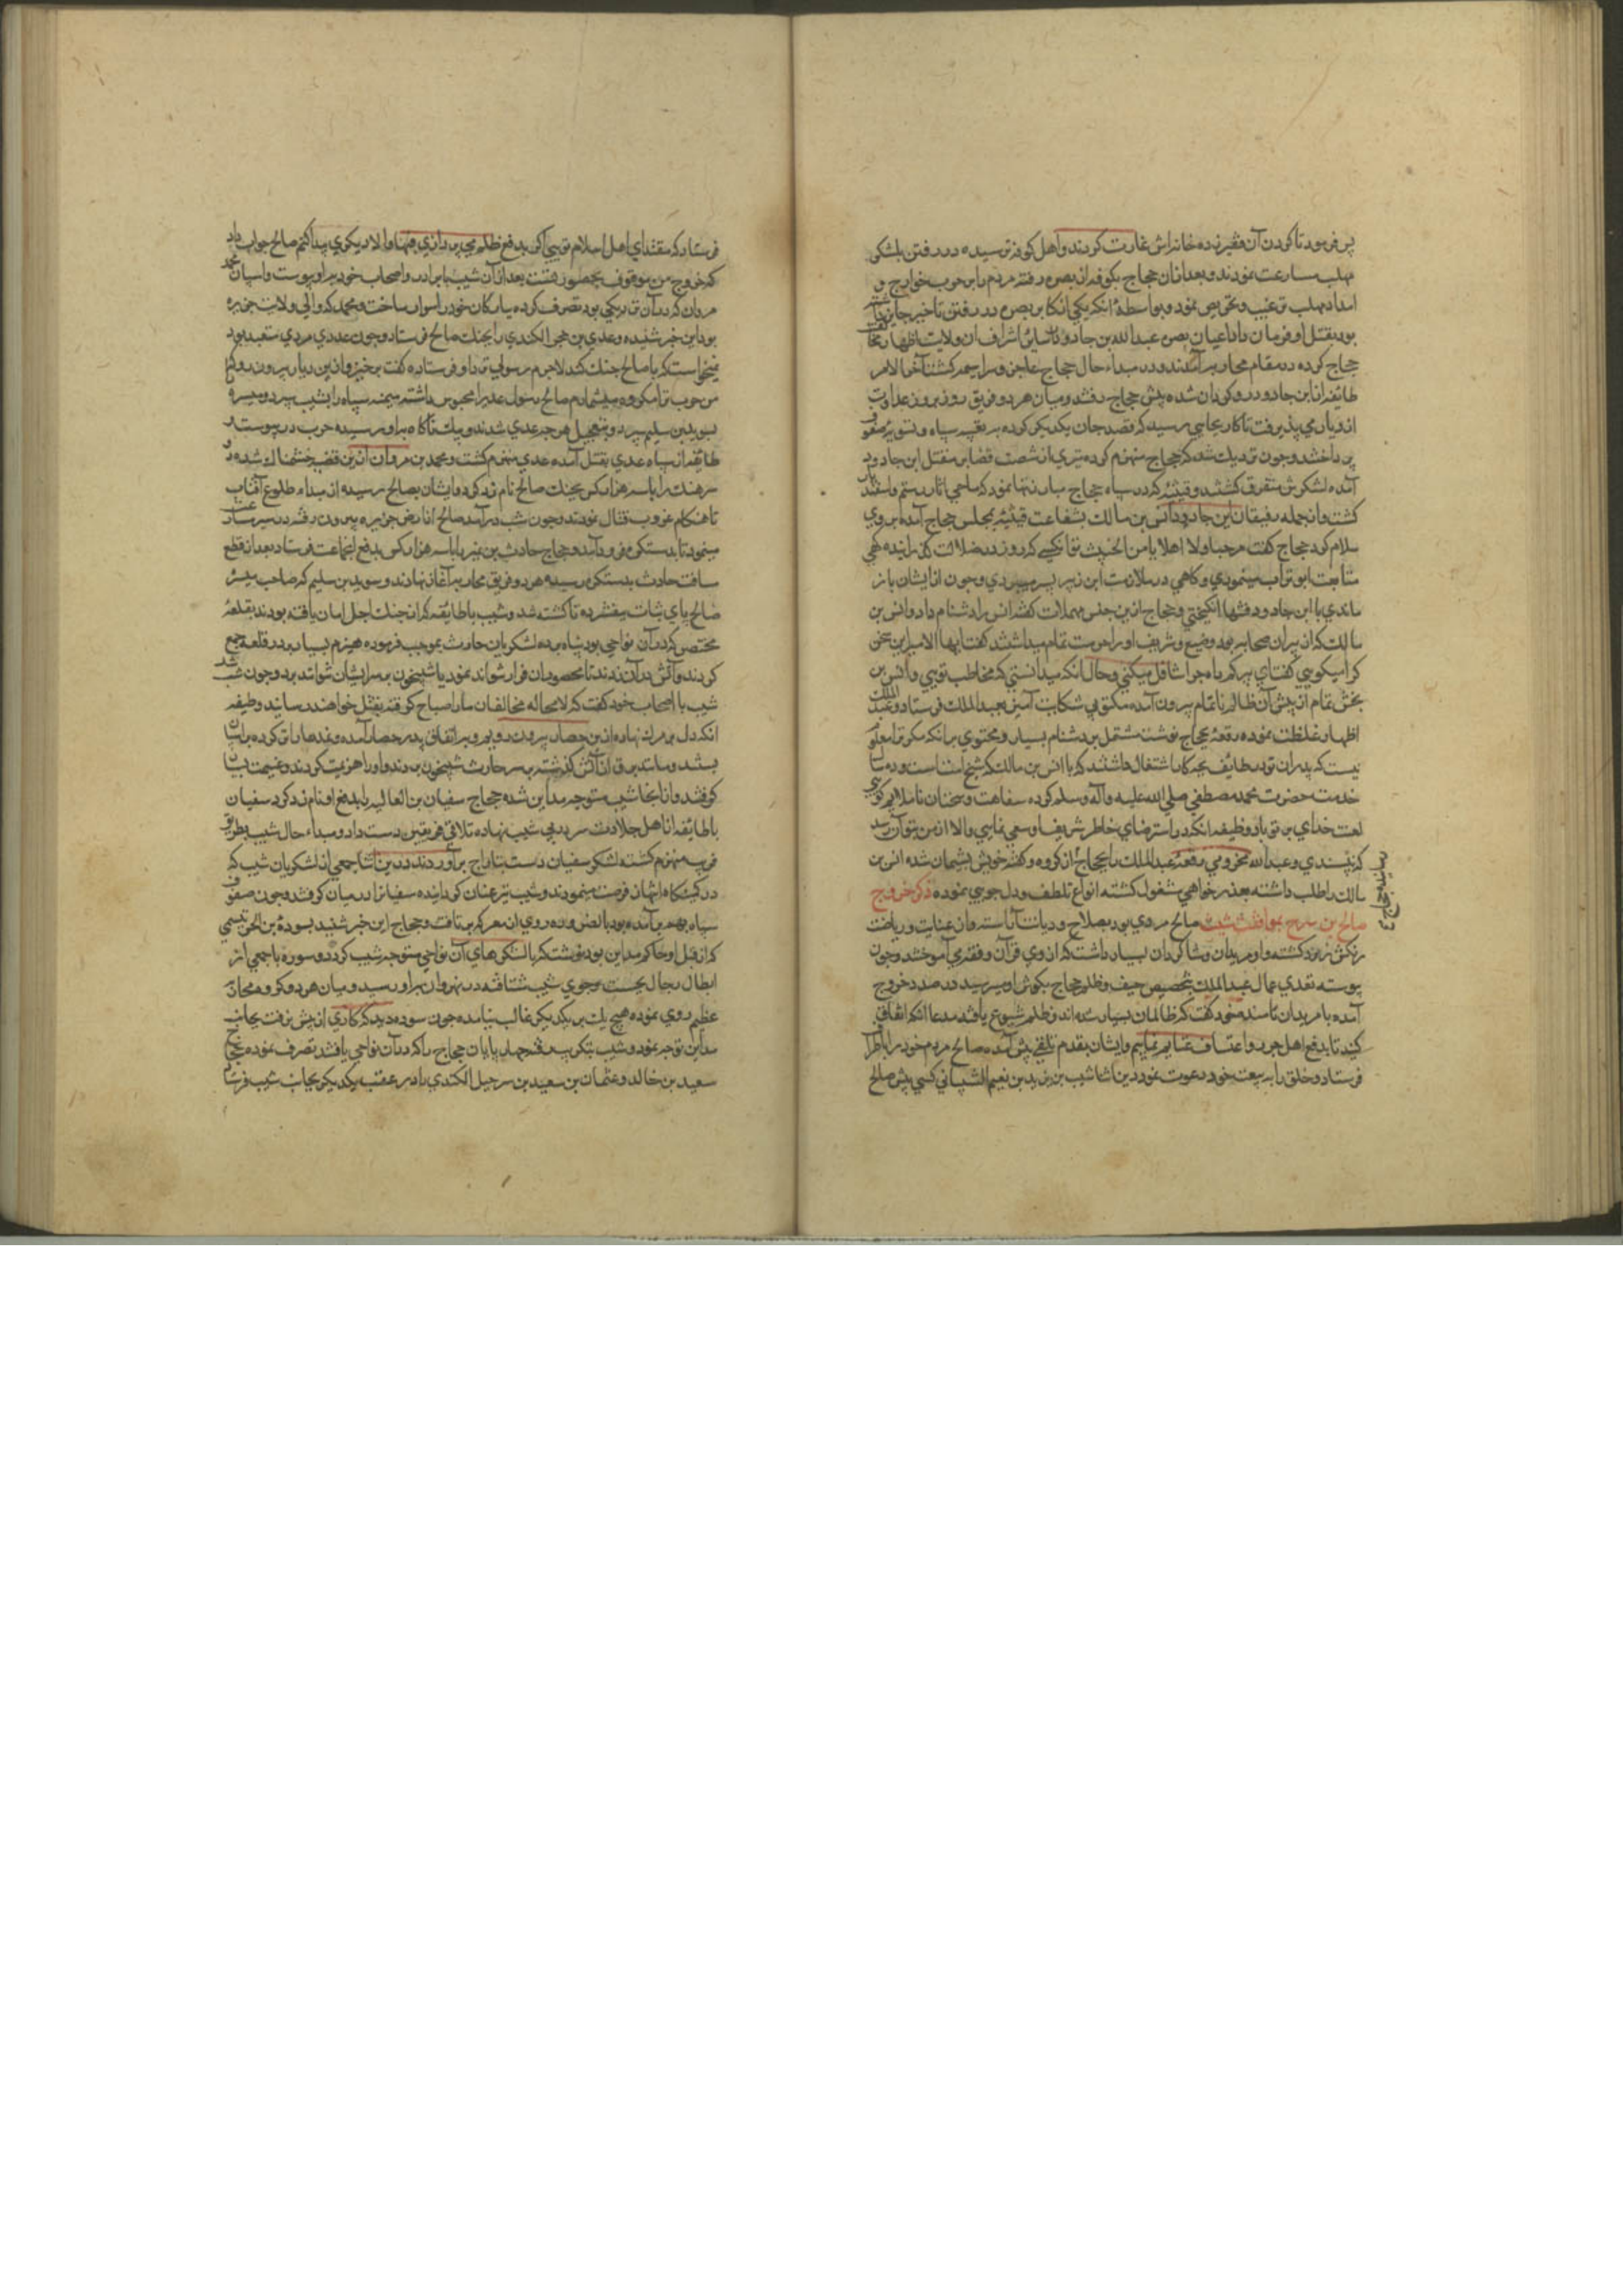 پس فرمود تا کردن آن فقیر زده خانه‌اش غارت کردند و اهل کوفه ترسیده در رفتن بلشکر
مهلب مسارعت نمودند و بعد از آن حجاج بکوفه از بصره رفته مردم را بر حرب خوارج و
امداد مهلب ترغیب و تحریص نمود و بواسطهٔ آنکه یکی از اکابر بصره در رفتن تاخیر جایز داشته
بود بقتل او فرمان داد اعیان بصره عبد الله بن جارود و سایر اشراف آن ولایت اظهار مخالفت
حجاج کرده در مقام محاربه آمدند و در مبداء حال حجاج عاجز و سراسیمه کشت آخر الامر
طایفه از ابن جارود رو کردان شده پیش حجاج رفتند و میان هر دو فریق روز بروز عداوت
ازدیاد می پذیرفت تا کار بجایی رسید که قصد جان یکدیکر کرده به تعبیه سپاه و تسویهٔ صفوف
پرداختند و چون نزدیک شد که حجاج منهزم کردد تیری از شصت قضا بر مقتل ابن جارود
آمده لشکرش متفرق کشتند و قتیبه که در سپاه حجاج مبارزتها نمود که ماحی آثار رستم و اسفندیار
کشت و از جمله رفیقان ابن جارود انس بن مالک بشفاعت قتیبه بمجلس حجاج آمده بروی
سلام کرد حجاج کفت مرحبا و لا اهلا یا ابن الخبیث تو آنکسی که روز در ضلالت گذرانیده کهی
متابعت ابو تراب مینمودی و کاهی در ملازمت ابن زبیر بسر میبردی و چون از ایشان باز
ماندی با ابن جارود فتنها انکیختی و حجاج ازین جنس مهملات کفته انس را دشنام داد و انس بن
مالک که از پیران صحابه بود وضیع و شریف او را حرمت تمام میداشتند کفت ایها الامیر این سخن
کرا میکویی کفت ای پیر کمراه چرا تغافل میکنی و حال آنکه میدانستی که مخاطب تویی و انس بن
بخش تمام از پیش آن ظالم ناتمام بیرون آمده مکتوبی شکایت آمیز بعبد الملک فرستاد و عبد الملک
اظهار غلظت نموده رقعهٔ بحجاج نوشت مشتمل بر دشنام بسیار و محتوی بر آنکه مکر ترا معلوم
نیست که پدران تو در طائف بچه کار اشتغال داشتند که با انس بن مالک که شیخ است و ده سال
خدمت حضرت محمد مصطفی صلی الله علیه و آله و سلم کرده سفاهت و سخنان ناملایم کویی
لعنت خدای بر تو باد وظیفه آنکه در استرضای خاطر شریف او سعی نمایی و الا از من بتو آن رسد
که نپسندی و عبد الله مخزومی رقعهٔ عبد الملک را بحجاج داد از کرده و کفته خویش پشیمان شده انس بن
مالک را طلب داشته بعذر خواهی مشغول کشته انواع تلطف و دلجویی نموده ذکر خروج
صالح بن سرح بموافقت شبیب صالح مردی بود بصلاح و دیانت آراسته و از عبادت و ریاضت
رنکش زرد کشته و او مریدان و شاکردان بسیار داشت که از وی قرآن و فقه می آموختند و چون
پیوسته تعدی عمال عبد الملک بتخصیص حیف و ظلم حجاج بکوش او میرسید در صدد خروج
آمده با مریدان نامند خود کفت که ظالمان بسیار شده اند و ظلم شیوع یافته مدعا آنکه اتفاق
کنید تا بدفع اهل جور و اعتساف قیام نماییم و ایشان بقدم تلقی پیش آمده صالح مردم خود را باطراف
فرستاد و خلق را به بیعت خود دعوت نمود درین اثنا شبیب بن یزید بن نعیم الشیبانی کسی پیش صالح
فرستاد که مقتدای اهل اسلام تویی اکر بدفع ظلم می پردازی فبها و الا دیکری پیدا کنم صالح جواب داد
که خروج من موقوف بحضور تست بعد از آن شبیب با برادر و اصحاب خود بدو پیوست و اسپان محمد
مروان که در آن نزدیکی بود تصرف کرده پیادکان خود را سوار ساخت و محمد که والی ولایت جزیره
بود این خبر شنیده و عدی بن عدی الکندی را بجنک صالح فرستاد و چون عدی مردی متعبد بود
نمیخواست که با صالح جنک کند لاجرم رسولی نزد او فرستاده کفت برخیز و ازین دیار بیرون رو که
من حرب ترا مکروه میشمارم صالح رسول عدی را محبوس داشته میمنه سپاه را بشبیب سپرد و میسره
بسوید بن سلیم سپرد و بتعجیل هر چه
طایفه از سپاه عدی بقتل آمده عدی منهزم کشت و محمد بن مروان ازین قضیه خشمناک شده دو
سرهنک را با سه هزار کس بجنک صالح نامزد کرد و ایشان بصالح رسیده از مبداء طلوع آفتاب
تا هنکام غروب قتال نمودند و چون شب در آمد صالح از ارض جزیره بیرون رفته در سیر مسارعت
مینمود تا بدسکره فرود آمد و حجاج حارث بن عمیره را با سه هزار کس بدفع انجماعت فرستاد بعد از قطع
مسافت حارث بدسکره رسیده هر دو فریق محاربه آغاز نهادند و سوید بن سلیم که صاحب میسره
صالح پای ثبات میفشرده تا کشته شد و شبیب با طایفه که از جنک اجل امان یافته بودند بقلعهٔ
مختصر که در آن نواحی بود پناه برده لشکریان حارث بموجب فرموده هیزم بسیار بر در قلعه جمع
کردند و آتش در آن زدند تا محصوران فرار نتوانند نمود یا شبیخون بر سر ایشان نتوانند برد و چون شب شد
شبیب با اصحاب خود کفت که لا محاله مخالفان ما را صباح کرفته بقتل خواهند رسانید وظیفه
آنکه دل بر مرک نهاده ازین حصار بیرون رویم و به اتفاق بدر حصار آمده و نمدها را تر کرده بر آنها
بستند و مانند برق از آتش کذشته بر سر حارث شبیخون بردند و او را هزیمت کردند و غنیمت بسیار
کرفتند و از آنجا شبیب متوجه مداین شده حجاج سفیان بن العالیه را بدفع او نامزد کرد سفیان
با طایفه از اهل جلادت سر در پی شبیب نهاده تلاقی فریقین دست داد و مبداء حال شبیب بطریق
فریب منهزم کشته لشکر سفیان دست بتاراج برآوردند درین اثنا جمعی از لشکریان شبیب که
در کمینکاه انتهاز فرصت مینمودند و شبیب نیز عنان کردانیده سفیان را در میان کرفتند و چون صفوف
سپاه بهم برآمده بود بالضروره روی از معرکه برتافت و حجاج این خبر شنید بسوره بن الحر تمیمی
که از قبل او حاکم مداین بود نوشت که با لشکرهای آن نواحی متوجه شبیب کردد و سوره با جمعی از
ابطال رجال بجست و جوی شبیب شتافته در نهروان بدو رسید و میان هر دو کروه محاربهٔ
عظیم روی نموده هیچ یک بر یکدیکر غالب نیامده چون سوره دید که کاری از پیش نرفت بجانب
مداین توجه نمود و شبیب بتکریت رفته چهار پایان حجاج را که در آن نواحی یافتند تصرف نموده حجاج
سعید بن خالد و عثمان بن سعید بن سرحیل الکندی را در عقب یکدیکر بجانب شبیب فرستاد